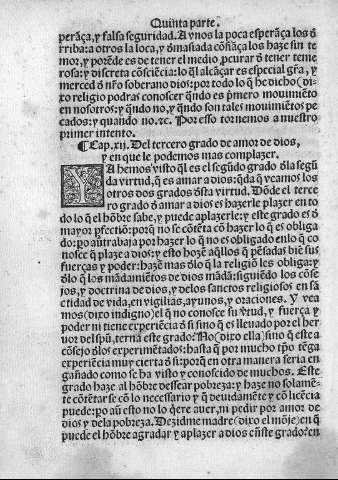 Quinta parte.
perãça, y falsa seguridad. A vnos la poca esperãça los d̃
rriba: a otros la loca, y d̃masiada cõfiãça los haze sin te
mor, y porẽde es de tener el medio, ꝓcurar d̃ tener teme
rosa: y discreta cõsciẽcia: lo q̃l alcãçar es especial gr̃a, y
merced d̃ nr̃o soberano dios: por todo lo q̃ he dicho (di
xo religio podras conoscer q̃ndo es p̃mero mouimiẽto
en nosotros: y q̃ndo no, y q̃ndo son tales mouimiẽtos pe
cados: y quando no. ⁊c. Por esso tornemos a nuestro
primer intento.
¶ Cap. xij. Del tercero grado de amor de dios,
y en que le podemos mas complazer.
YA hemos visto q̃l es el segũdo grado d̃la segũ
da virtud, q̃ es amar a dios: q̃da q̃ veamos los
otros dos grados d̃sta virtud. Dõde el terce
ro grado d̃ amar a dios es hazerle plazer en to
do lo q̃ el hõbre sabe, y puede aplazerle: y este grado es d̃
mayor ꝑfectiõ: porq̃ no se cõtẽta cõ hazer lo q̃ es obliga
do: po au trabaja por hazer lo q̃ no es obligado en lo q̃ co
nosce q̃ plaze a dios: y esto hazẽ aq̃llos q̃ pẽsadas biẽ sus
fuerças y poder: hazẽ mas d̃lo q̃ la religiõ les obliga: y
d̃lo q̃ los mãdamiẽtos de dios mãdã: siguiẽdo los cõse
jos, y doctrina de dios, y delos sanctos religiosos en sã
ctidad de vida, en vigilias, ayunos, y oraciones. Y vea
mos (dixo indigno) el q̃ no conosce su v̓tud, y fuerça y
poder ni tiene experiẽcia d̃ si sino q̃ es lleuado por el her
uor del sp̃u, terna este grado? No (dixo ella) sino q̃ este a
cõsejo d̃los experimẽtados: hasta q̃ por mucho tp̃o tẽga
experiẽcia muy cierta d̃ si: porq̃ en otra manera seria en
gañado como se ha visto y conoscido de muchos. Este
grado haze al hõbre dessear pobreza: y haze no solamẽ-
te cõtẽtarse cõ lo necessario y q̃ deuidamẽte y cõ licẽcia
puede: po aũ esto no lo q̃ere auer, ni pedir por amor de
dios y dela pobreza. Dezidme madre (dixo el mõje) en q̃
puede el hõbre agradar y aplazer a dios eñste grado? en